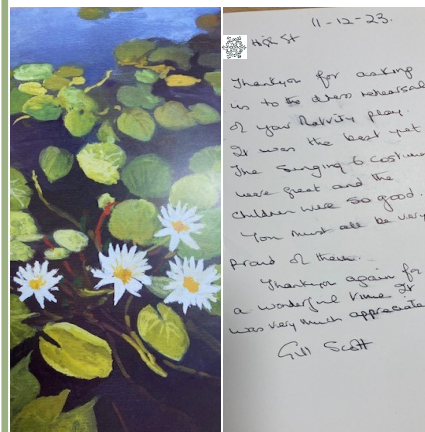 11-12-23.
High St
Thankyou for asking
us to dress rehearsal
of your Nativity play.
It was the best yet
The singing & costumes
were great and the
children were so good.
You must all be very
proud of them.
Thankyou again for
a wonderful time It
was very much appreciate
Gill Scott